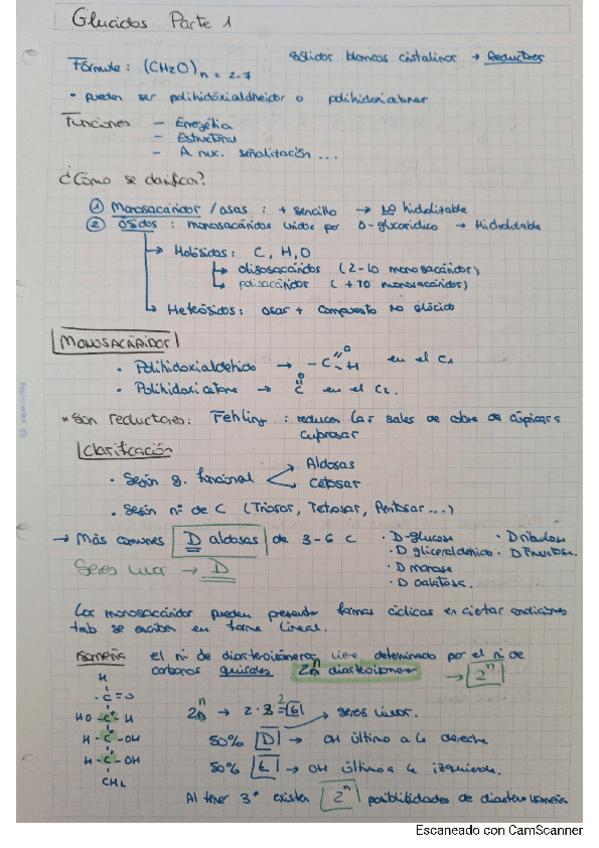 Glúcidos Parte 1
Fórmula: (CH2O)n = 2-7 sólidos blancos cristalinos → Reductores
• pueden ser polihidroxialdheidos o polihidroxicetonas
Funciones – Energética
– Estructural
– A. nuc. señalitación ...
¿Cómo se clasifican?
① Monosacáridos / osas : + sencillo → no hidrolizable
② Ósidos : monosacáridos unidos por O-glucosídico → Hidrolizable
→ Holósidos: C, H, O
→ oligosacáridos (2-10 monosacáridos)
→ polisacáridos (+10 monosacáridos)
→ Heterósidos: osas + compuesto no glúcido
MONOSACÁRIDOS
• Polihidroxialdehido → -C=O H en el C1
• Polihidroxicetona → C=O en el C2.
* Son reductores: Fehling : reducen las sales de cobre de cúpricas a
cuprosas
Clasificación
• Según g. funcional Aldosas
Cetosas
• Según nº de C (Triosas, Tetrosas, Pentosas ...)
→ Más comunes D aldosas de 3-6 C • D-glucosa • D ribulosa
• D gliceraldehido • D Fructosa.
Seres vivos → D • D manosa
• D Galatosa.
Los monosacáridos pueden presentar formas cíclicas en ciertas condiciones
tmb se escriben en forma lineal.
Isomería el nº de diasteroisómeros viene determinado por el nº de
carbonos quirales 2n diasteroisomeros → 2ⁿ
H
-C=O
HO -C*- H
H -C*- OH
H -C*- OH
CH2
2n → 2·3 = 6 → seres vivos.
n 2
50% D → OH último a la derecha
50% L → OH último a la izquierda.
Al tener 3* existen 2ⁿ posiblilidades de diasteroisomería
Escaneado con CamScanner